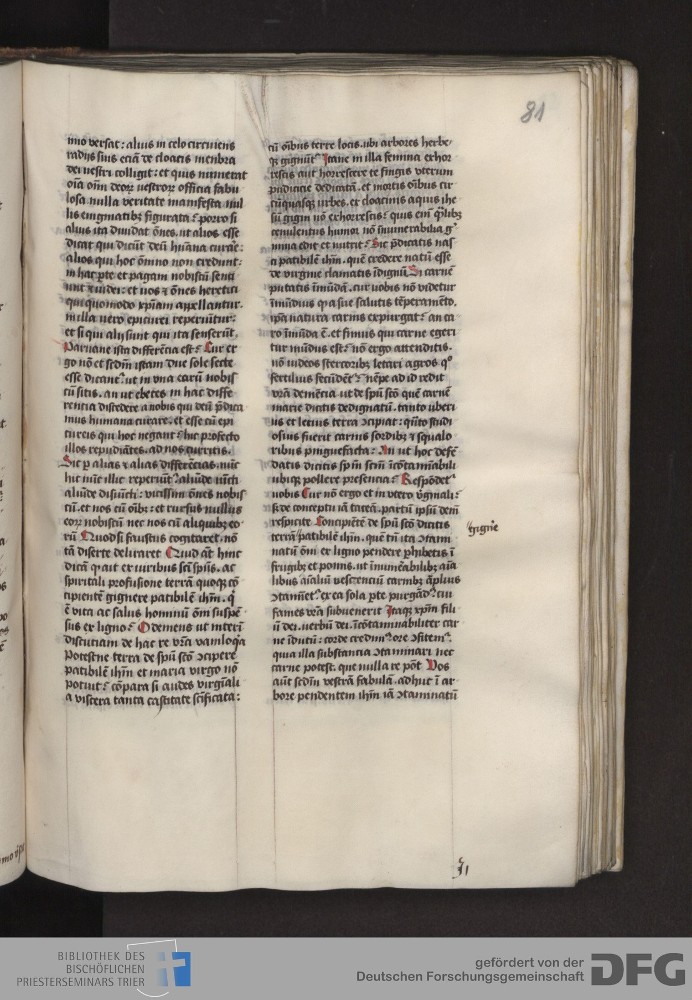 81
mo versat: alius in celo circuiens
radijs suis eciā de cloacis menbra
dei vestri colligit: et quis numerat
oīa om̄ deoꝝ vestroꝝ officia fabu
losa nulla veritate manifesta nul
lis enigmatibꝫ figurata? porro si
alius ita diuidat ōnes. ut alios esse
dicat qui dicūt deū hūana curare:
alios qui hoc ōmino non credunt:
in hac pte et pagani nobiscū senti
unt et iudei: et nos et ōnes heretici
qui quomodo xp̄iani appellantur.
in illa vero epicurei reperiūtur:
et si qui alij sunt qui ita senserūt.
Paruane ista differēcia est? Cur er
go nō et scdm̄ istam due sole secte
esse dicant᷑. ut in vna earū nobis
cū sitis. an ut ebetes in hac diffe
rencia discedere a nobis qui deū p̄dica
mus humana curare. et esse cū epi
cureis qui hoc negant? hic profecto
illos repudiātes. ad nos curritis.
Sic p alias et alias differēcias. nūc
hic nūc illic reperiūt᷑. aliūde iūcti
aliūde disiūcti: vicissim ōnes nobis
cū. et nos cū oībꝫ: et rursus nullus
eoꝝ nobiscū nec nos cū aliquibꝫ eo
rū Quod si faustus cogitaret. nō
tā diserte deliraret Quid aūt hinc
dicā qꝫ ait ex uiribus sci sp̄us. ac
spiritali profusione terrā quoqꝫ cō
cipientē gignere patibilē ihm̄. q
ē vita ac salus hominū om̄ suspē
sus ex ligno? O demens ut interī
discutiam de hac re vr̄a vaniloq̄a
Potestne terra de sp̄u scō ɔcipere
patibilē ihm̄ et maria virgo nō
potuit? cōpara si audes virgīali
a viscera tanta castitate scīficata:
cū oībus terre locis. ubi arbores herbe
qꝫ gignūt᷑. Itane in illa femina exhor
rescis aut horrescere te fingis vterum
pudicicie dedicatā. et in ortis oībus cir
cūquasqꝫ urbes. ex cloacinis aquis ihe
sū gigni nō exhorrescis? quis eni q̄libꝫ
cenulentus humor nō innumerabilia g
nimia edit et nutrit? Sic p̄dicatis nas
ci patibilē ihm̄. quē credere natū esse
de virgine clamatis īdignū Si carnē
putatis īmūdā. cur uobis nō videtur
īmūdius q̄ a sue salutis tēperamēto.
ip̄a natura carnis expurgat? an ca
ro īmūda ē. et fimus qui carne egeri
tur mūdus est? nō ergo attenditis.
nō uideos stercoribꝫ letari agros q°
fertilius fecūdēt᷑? nēpe ad id redit
vr̄a demēcia ut de sp̄u scō que carnē
marie dicatis dedignatū. tanto uberi
us et letius terra ɔcipiat: quāto studi
osius fuerit carnis sordibꝫ et squalo
ribus pinguefacta? An ut hoc defē
datis dicitis sp̄m scm̄ icōtaminabili
ubiqꝫ pollere presencia? Respōdet᷑
nobis Cur nō ergo et in vtero v̄ginali?
sꝫ de conceptu iā tacea. partū ipsū dem̄
respicite Concipiētē de sp̄u scō dicitis
terrā patibilē ihm̄. quē tn̄ ita ɔtami
natū om̄ ex ligno pendere phibetis ī
frugibꝫ et pomis. ut īnumerabilibꝫ aīa
libus aīaliū vescenciū carnibꝫ āplius
ɔtaminet᷑. ex ea sola pte purgād᷑. cui
fames vr̄a subuenerit Itaqꝫ xp̄m fili
ū dei. verbū dei. icōtaminabiliter car
ne īdutū: corde credim᷑ ore ɔfitem᷑.
quia illa substancia ɔtaminari nec
carne potest. que nulla re pōt Vos
aūt scdm̄ vestrā fabulā. adhuc ī ar
bore pendentem ihm̄ iā ɔtaminatū
gigne
BIBLIOTHEK DES
BISCHÖFLICHEN
PRIESTERSEMINARS TRIER
gefördert von der
Deutschen Forschungsgemeinschaft
DFG